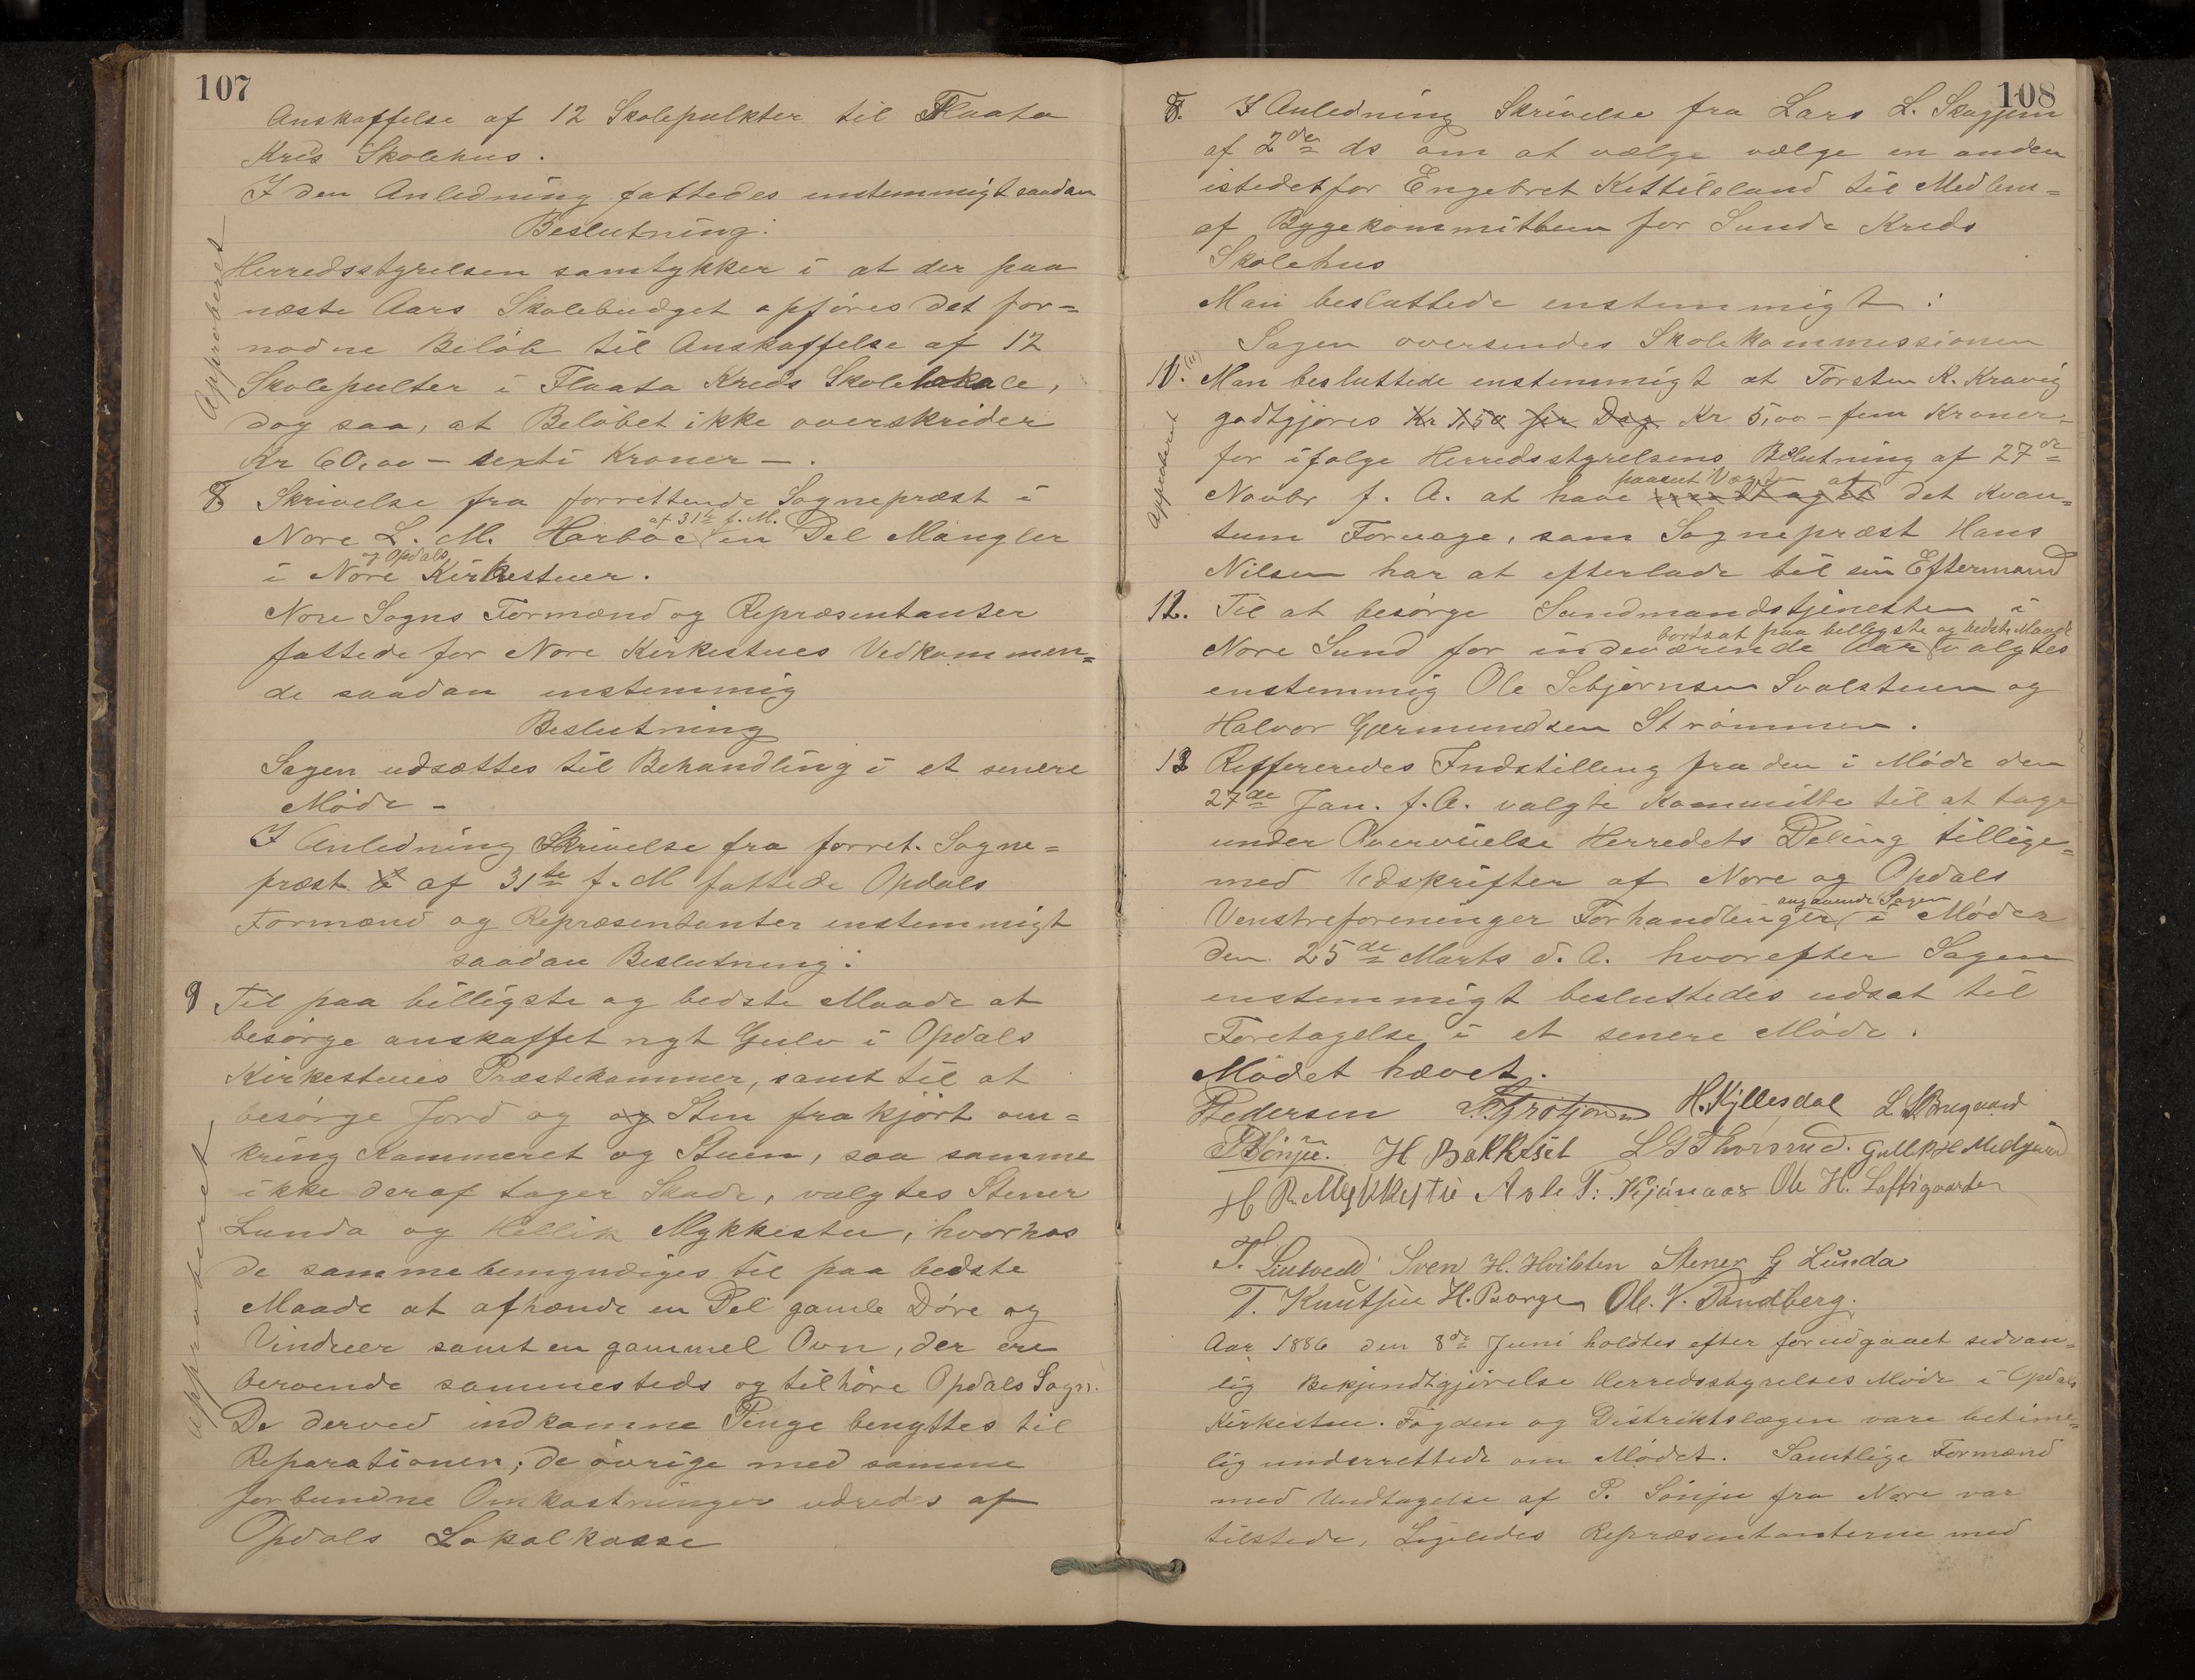 107
Anskaffelse af 12 Skolepulkter til Flaata
Kreds Skolehus.
I den Anledning fattedes enstemmigt saadan
Beslutning:
Approberet
Herredsstyrelsen samtykker i at der paa
næste Aars Skolebudget opføres det for-
nødne Beløb til Anskaffelse af 12
Skolepulter i Flaata Kreds Skolelokale,
dog saa, at Beløbet ikke overskrider
Kr 60,00 – sexti Kroner – .
8. Skrivelse fra forrettende Sognepræst i
Nore L. M. Harboe af 31te f. M. en Del Mangler
i Nore og Opdals Kirkestuer.
Nore Sogns Formænd og Repræsentanter
fattede for Nore Kirkestues Vedkommen=
de saadan enstemmig
Beslutning
Sagen udsættes til Behandling i et senere
Møde –
I Anledning Skrivelse fra forret. Sogne=
præst af 31te f. M fattede Opdals
Formænd og Repræsentanter enstemmigt
saadan Beslutning:
9 Til paa billigste og bedste Maade at
besørge anskaffet nyt Gulv i Opdals
Kirkestues Præstekammer, samt til at
besørge Jord og og Sten frakjørt om=
kring Kammeret og Stuen, saa samme
ikke deraf tager Skade, valgtes Stener
Lunda og Hellik Mykkestu, hvorhos
de samme bemyndiges til paa bedste
Maade at afhænde en Del gamle Døre og
Vinduer samt en gammel Ovn, der ere
beroende sammesteds og tilhøre Opdals Sogn.
De derved indkomne Penge benyttes til
Reparationen; de øvrige med samme
forbundne Omkostninger udredes af
Opdals Lokalkasse
Approberet
108
8. I Anledning Skrivelse fra Lars L. Skogjem
af 2den ds om at vælge vælge en anden
istedetfor Engebret Kettilsland til Medlem=
af Bygekommitteen for Sunde Kreds
Skolehus
Man besluttede enstemmigt:
Sagen oversendes Skolekommissionen
10. (11) Man besluttede enstemmigt at Torsten K. Kravig
godtgjøres Kr 1,50 per Dag Kr 5,00 – fem Kroner –
for ifølge Herredsstyrelsens Beslutning af 27de
Novbr f. A. at have paaset Vægten af modtaget det Kvan=
tum Forvage, som Sognepræst Hans
Nilsen har at efterlade til sin Eftermand
Approberet
12. Til at besørge Sundmandstjenesten i
Nore Sund for indeværende Aar bortsat paa billigste og bedste Maade valgtes
enstemmig Ole Sebjørnsen Svalstuen og
Halvor Gjermundsen Strømmen.
13 Reffereredes Indstilling fra den i Møde den
27de Jan. f. A. valgte Kommitte til at tage
under Overveielse Herredets Deling tillige=
med Udskrifter af Nore og Opdals
Venstreforeninger Forhandlinger angaaende Sagen i Møder
den 25de Marts d. A. hvorefter Sagen
enstemmigt besluttedes udsat til
Foretagelse i et senere Møde.
Mødet hævet.
Pedersen H. Kjllesdal L. Bregaard
P Sønju. H Bakkesèt L G Thorsrud. Gullik H Medgaard
H R. Mykkestu Asle T: Kjønaas Ole H. Loftsgaarden
T. Liulvedd Sven H. Hvilsten Stener G Lunda
T. Knutsen H. Borge Ole. V. Sandberg.
Aar 1886 den 8de Juni holdtes efter forudgaaet sedvan=
lig Bekjendtgjørelse Herredsstyrelses Møde i Opdals
Kirkestue. Fogden og Distriktslægen vare betime=
lig underrettede om Mødet. Samtlige Formænd
med Undtagelse af P. Sønju fra Nore var
tilstede, Ligeledes Repræsentanterne med